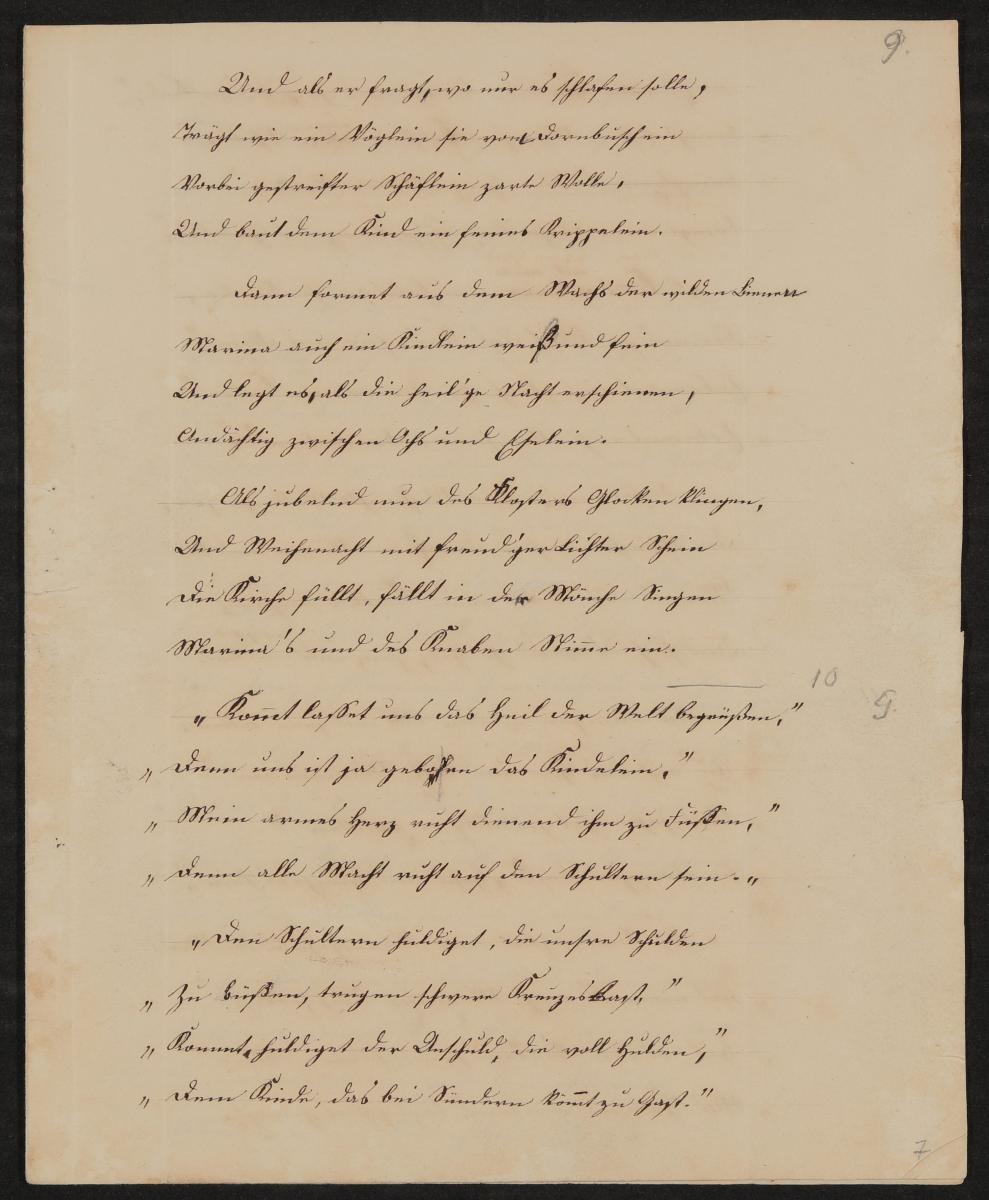 9.
Und als er fragt, wo nur es schlafen solle,
Trägt wie ein Vöglein sie vom Dornbusch ein
Vorbei gestreifter Schäflein zarte Wolle,
Und baut dem Kind ein feines Krippelein.
Dann formet aus dem Wachs der wilden Bienen
Marina auch ein Kindlein weiß und fein
Und legt es, als die heil'ge Nacht erschienen,
Andächtig zwischen Ochs und Eselein.
Als jubelnd nun des Klosters Glocken klingen,
Und Weihenacht mit freud'ger Lichter Schein
Die Kirche füllt, fällt in der Mönche Singen
Marina's und des Knaben Stimme ein.
10
9.
„Kommt lasset uns das Heil der Welt begrüßen,"
„Denn uns ist ja geboren das Kindelein,"
„Mein armes Herz ruht dienend ihm zu Füssen,"
„Denn alle Macht ruht auf den Schultern sein.„
„Den Schultern huldiget, die unsre Schulden
„Zu büßen, trugen schwere Kreuzeslast,"
„Kommt, huldiget der Unschuld, die voll Hulden,"
„Dem Kinde, das bei Sündern kömmt zu Gast."
7